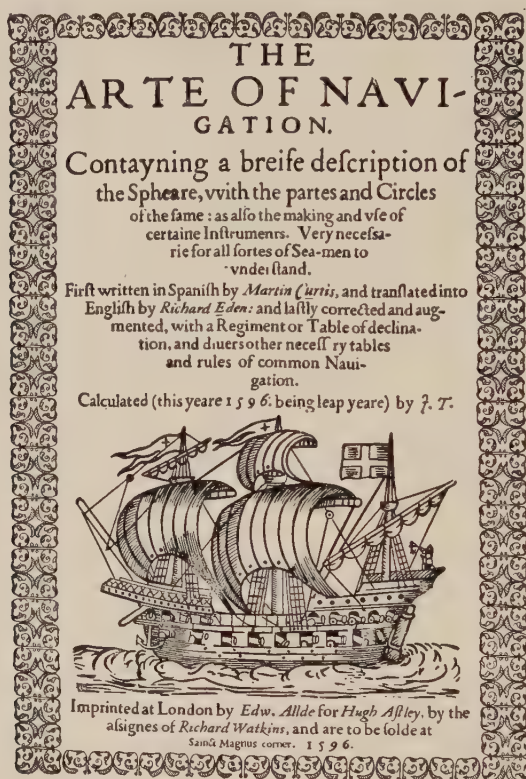 THE
ARTE OF NAVI-
GATION.
Contayning a breife deſcription of
the Spheare, vvith the partes and Circles
of the ſame : as alſo the making and vſe of
certaine Inſtruments. Very neceſſa-
rie for all ſortes of Sea-men to
vnderſtand.
Firſt written in Spaniſh by Martin Curtis, and tranſlated into
Engliſh by Richard Eden: and laſtly corrected and aug-
mented, with a Regiment or Table of declina-
tion, and diuers other neceſſ ry tables
and rules of common Naui-
gation.
Calculated (this yeare 1596. being leap yeare) by J. T.
Imprinted at London by Edw. Allde for Hugh Aſtley, by the
aſsignes of Richard Watkins, and are to be ſolde at
Sainct Magnus corner. 1596.